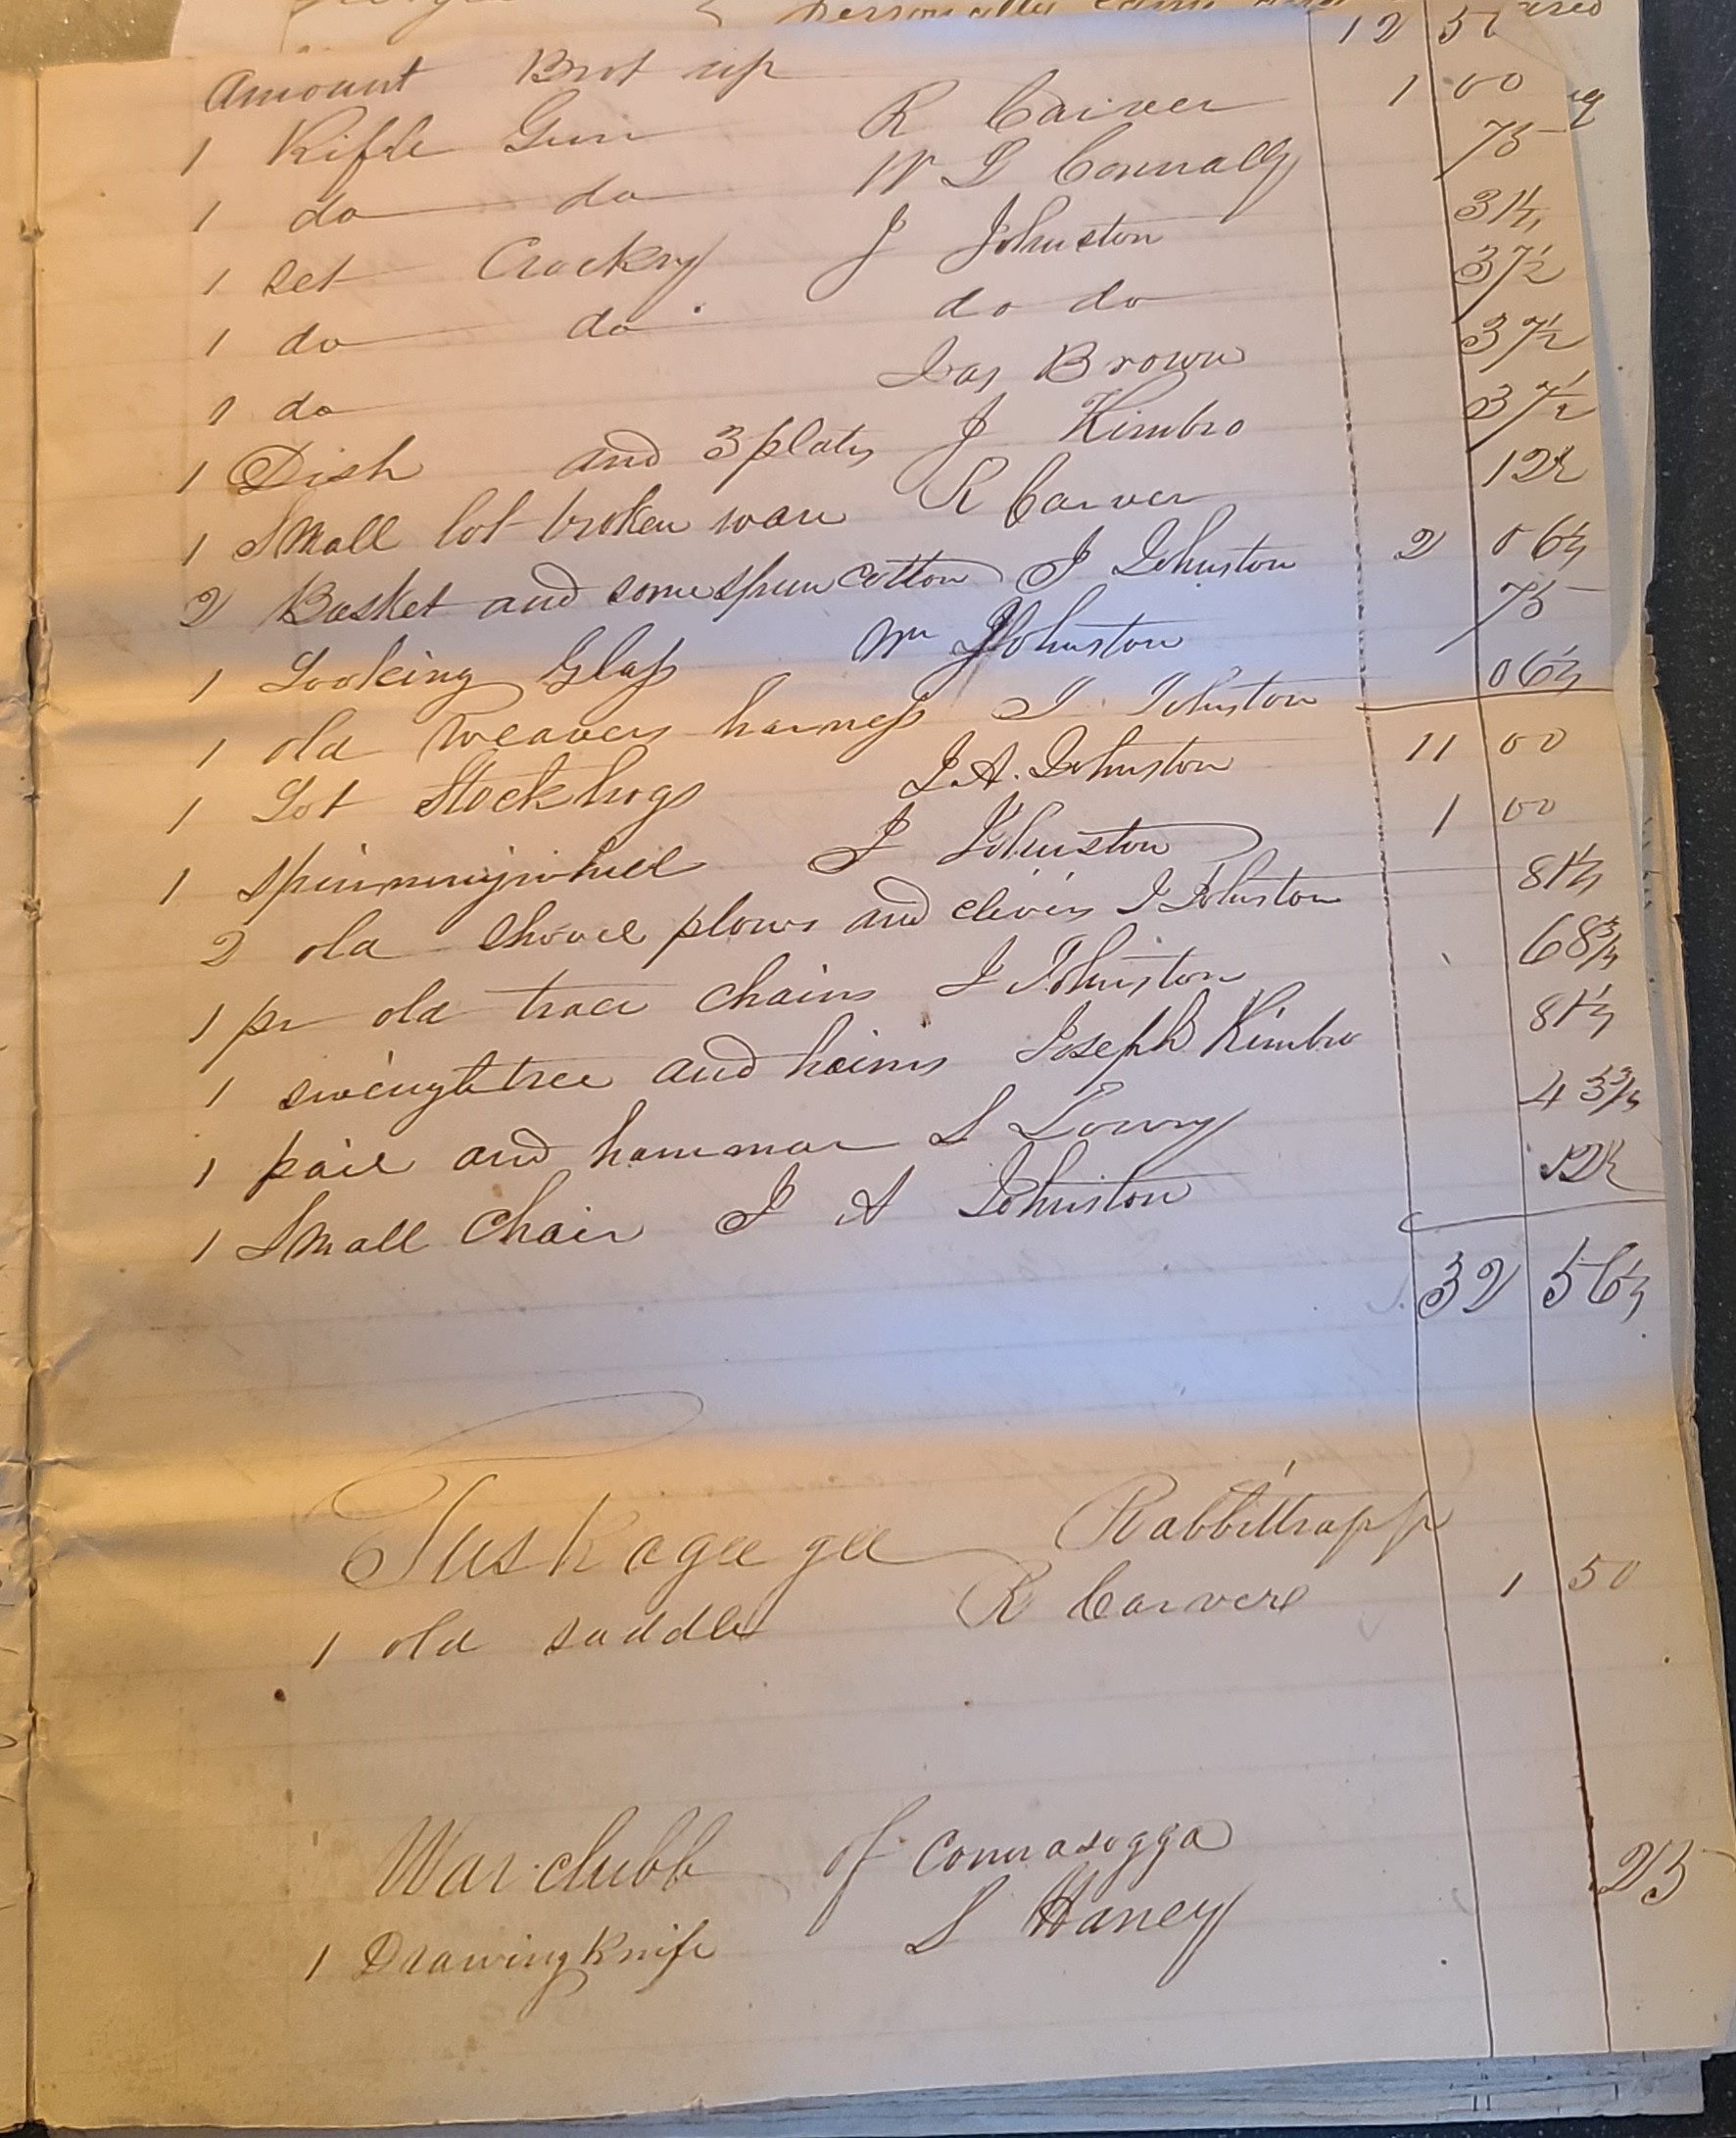 personally came
Amount Brot up 12 50
1 Rifle Gun R Carver 1 00
1 do do W D Connally 75
1 set Crockry J Johnston 31¼
1 do do do do 37½
1 do Jas Brown 37½
1 Dish and 3 plates J Kimbro 37½
1 Small lot broken ware R Carver 12½
2 Basket and some spun cotton J Johnston 2 06¼
1 Looking Glass Wm Johnston 75
1 old weavers harness J Johnston 06¼
1 Lot Stock hogs J. A. Johnston 11 00
1 spinningwheel J Johnston 1 00
2 old shovel plows and clivis J Johnston 81¼
1 pr old trace chains J Johnston 68¾
1 swingletree and haims Joseph Kimbro 81¼
1 pail and hammar S Lowry 43¾
1 Small Chair J A Johnston 12½
32 56¼
Tuskegeegee Rabbittrapp
1 old saddle R Carvere 1 50
War clubb of Connasogga
1 Drawing Knife S Haney 25